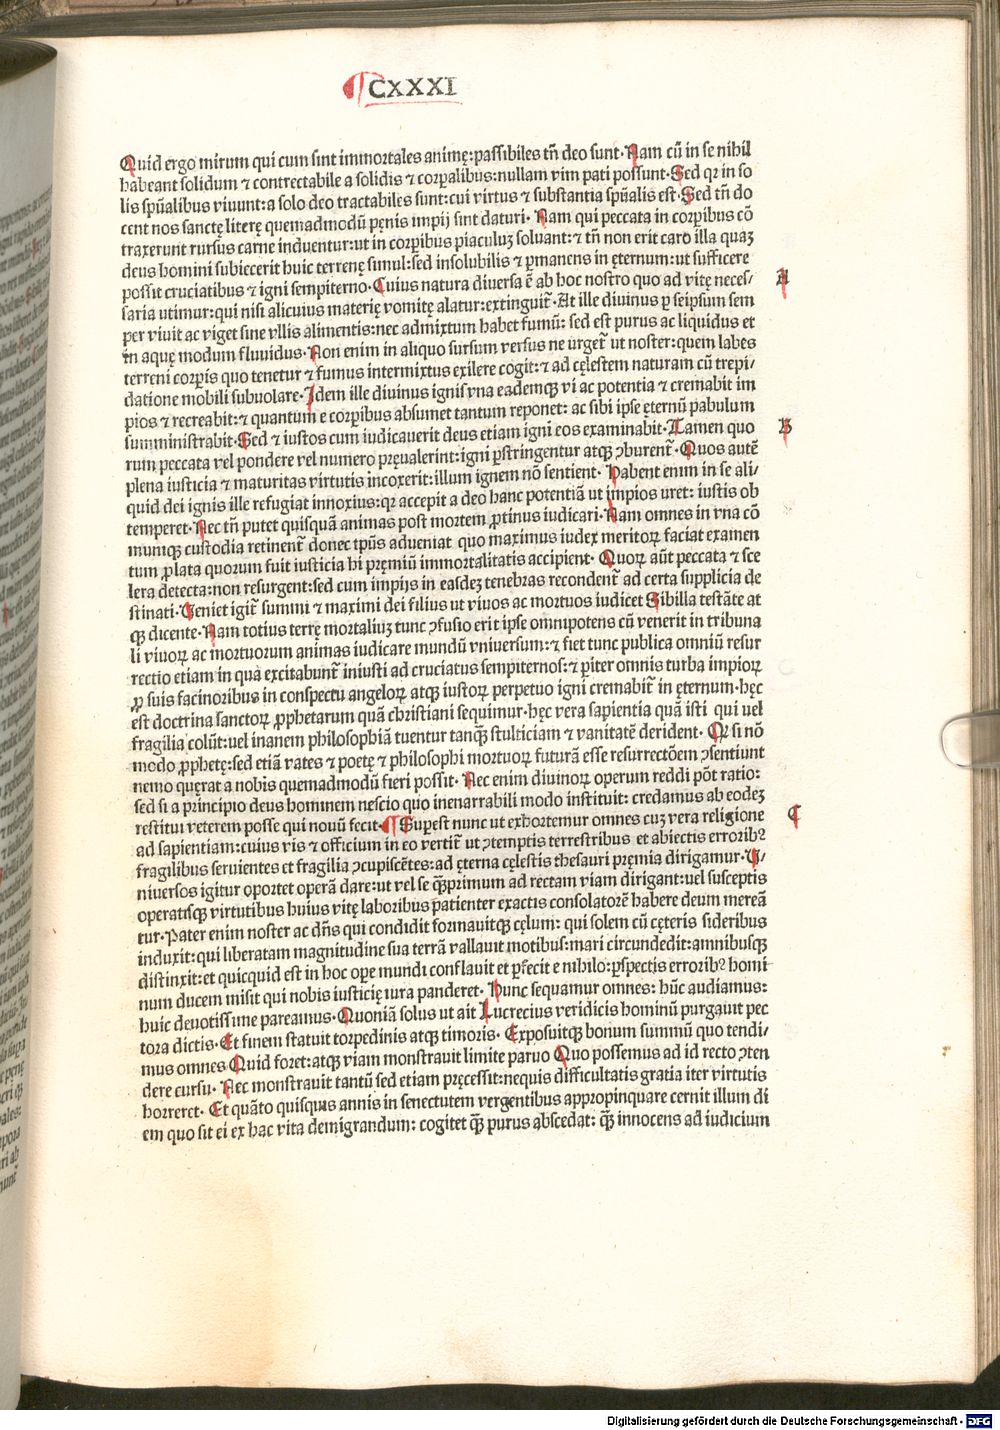 CXXXI
Quid ergo mirum qui cum sint immortales animę:passibiles tñ deo sunt. Nam cũ in se nihil
habeant solidum ⁊ contrectabile a solidis ⁊ corꝑalibus:nullam vim pati possunt. Sed qꝛ in so
lis spũalibus viuunt:a solo deo tractabiles sunt:cui virtus ⁊ substantia spũalis est. Sed tñ do
cent nos sanctę literę quemadmodũ pęnis impij sint daturi. Nam qui peccata in corꝑibus cõ
traxerunt rursus carne induentur:ut in corꝑibus piaculuꝫ soluant:⁊ tñ non erit caro illa quaꝫ
deus homini subiecerit huic terrenę simul:sed insolubilis ⁊ ꝑmanens in ęternum:ut sufficere
possit cruciatibus ⁊ igni sempiterno. Cuius natura diuersa ẽ ab hoc nostro quo ad vitę neces/
A
saria utimur:qui nisi alicuius materię vomitę alatur:extinguit̃. At ille diuinus ꝑ seipsum sem
per viuit ac viget sine vllis alimentis:nec admixtum habet fumũ: sed est purus ac liquidus et
in aquę modum fluuidus. Non enim in aliquo sursum versus ne urget̃ ut noster:quem labes
terreni corꝑis quo tenetur ⁊ fumus intermixtus exilere cogit:⁊ ad cęlestem naturam cũ trepi/
datione mobili subuolare. Idem ille diuinus ignis vna eademqꝫ vi ac potentia ⁊ cremabit im
pios ⁊ recreabit:⁊ quantum e corꝑibus absumet tantum reponet: ac sibi ipse ęternũ pabulum
summinstrabit. Sed ⁊ iustos cum iudicauerit deus etiam igni eos examinabit. Tamen quo
B
rum peccata vel pondere vel numero pręualerint:igni ꝑstringentur atqꝫ ↄburent̃. Quos autẽ
plena iusticia ⁊ maturitas virtutis incoxerit:illum ignem nõ sentient. Habent enim in se ali/
quid dei ignis ille refugiat innoxius:qꝛ accepit a deo hanc potentiã ut impios uret: iustis ob
temperet. Nec tñ putet quisquã animas post mortem ꝓtinus iudicari. Nam omnes in vna cõ
muniqꝫ custodia retinent̃ donec tp̃us adueniat quo maximus iudex meritoꝝ faciat examen
tum ꝓlata quorum fuit iusticia hi pręmiũ immortalitatis accipient. Quoꝝ aũt peccata ⁊ sce
lera detecta:non resurgent:sed cum impijs in easdeꝫ tenebras recondent̃ ad certa supplicia de
stinati. Veniet igit̃ summi ⁊ maximi dei filius ut viuos ac mortuos iudicet Sibilla testãte at
qꝫ dicente. Nam totius terrę mortaliuꝫ tunc ↄfusio erit ipse omnipotens cũ venerit in tribuna
li viuoꝝ ac mortuorum animas iudicare mundũ vniuersum:⁊ fiet tunc publica omniũ resur
rectio etiam in qua excitabunt̃ iniusti ad cruciatus sempiternos:⁊ ꝑiter omnis turba impioꝝ
ꝓ suis facinoribus in conspectu angeloꝝ atqꝫ iustoꝝ perpetuo igni cremabit̃ in ęternum. hęc
est doctrina sanctoꝝ ꝓphetarum quã christiani sequimur. hęc vera sapientia quã isti qui uel
fragilia colũt:uel inanem philosophiã tuentur tanqꝫ̃ stulticiam ⁊ vanitatẽ derident. Qꝛ si nõ
modo ꝓphetę:sed etiã vates ⁊ poetę ⁊ philosophi mortuoꝝ futurã esse resurrectõem ↄsentiunt
nemo quęrat a nobis quemadmodũ fieri possit. Nec enim diuinoꝝ operum reddi põt ratio:
sed si a principio deus hominem nescio quo inenarrabili modo instituit: credamus ab eodeꝫ
restitui veterem posse qui nouũ fecit. ¶ Suꝑest nunc ut exhortemur omnes cuꝫ vera religione
C
ad sapientiam:cuius vis ⁊ officium in eo vertit̃ ut ↄtemptis terrestribus et abiectis erroribꝰ
fragilibus seruientes et fragilia ↄcupiscẽtes:ad ęterna cęlestis thesauri pręmia dirigamur. V/
niuersos igitur oportet operã dare:ut vel se qꝫ̃primum ad rectam viam dirigant:uel susceptis
operatisqꝫ virtutibus huius vitę laboribus patienter exactis consolatorẽ habere deum mereã
tur. Pater enim noster ac dñs qui condidit formauitqꝫ cęlum: qui solem cũ cęteris sideribus
induxit:qui liberatam magnitudine sua terrã vallauit mōtibus:mari circundedit:amnibusqꝫ
distinxit:et quicquid est in hoc ope mundi conflauit et ꝑfecit e nihilo:ꝑspectis erroribꝰ homi
num ducem misit qui nobis iusticię iura panderet. Hunc sequamur omnes: hũc audiamus:
huic deuotissime pareamus. Quoniã solus ut ait Lucrecius veridicis hominũ purgauit pec
tora dictis. Et finem statuit torpedinis atqꝫ timoris. Exposuitqꝫ bonum summũ quo tendi/
mus omnes Quid foret:atqꝫ viam monstrauit limite paruo Quo possemus ad id recto ↄten
dere cursu. Nec monstrauit tantũ sed etiam pręcessit:nequis difficultatis gratia iter virtutis
horreret. Et quãto quisquis annis in senectutem vergentibus appropinquare cernit illum di
em quo sit ei ex hac vita demigrandum: cogitet qꝫ̃ purus abscedat: qꝫ̃ innocens ad iudicium
Digitalisierung gefördert durch die Deutsche Forschungsgemeinschaft - DFG